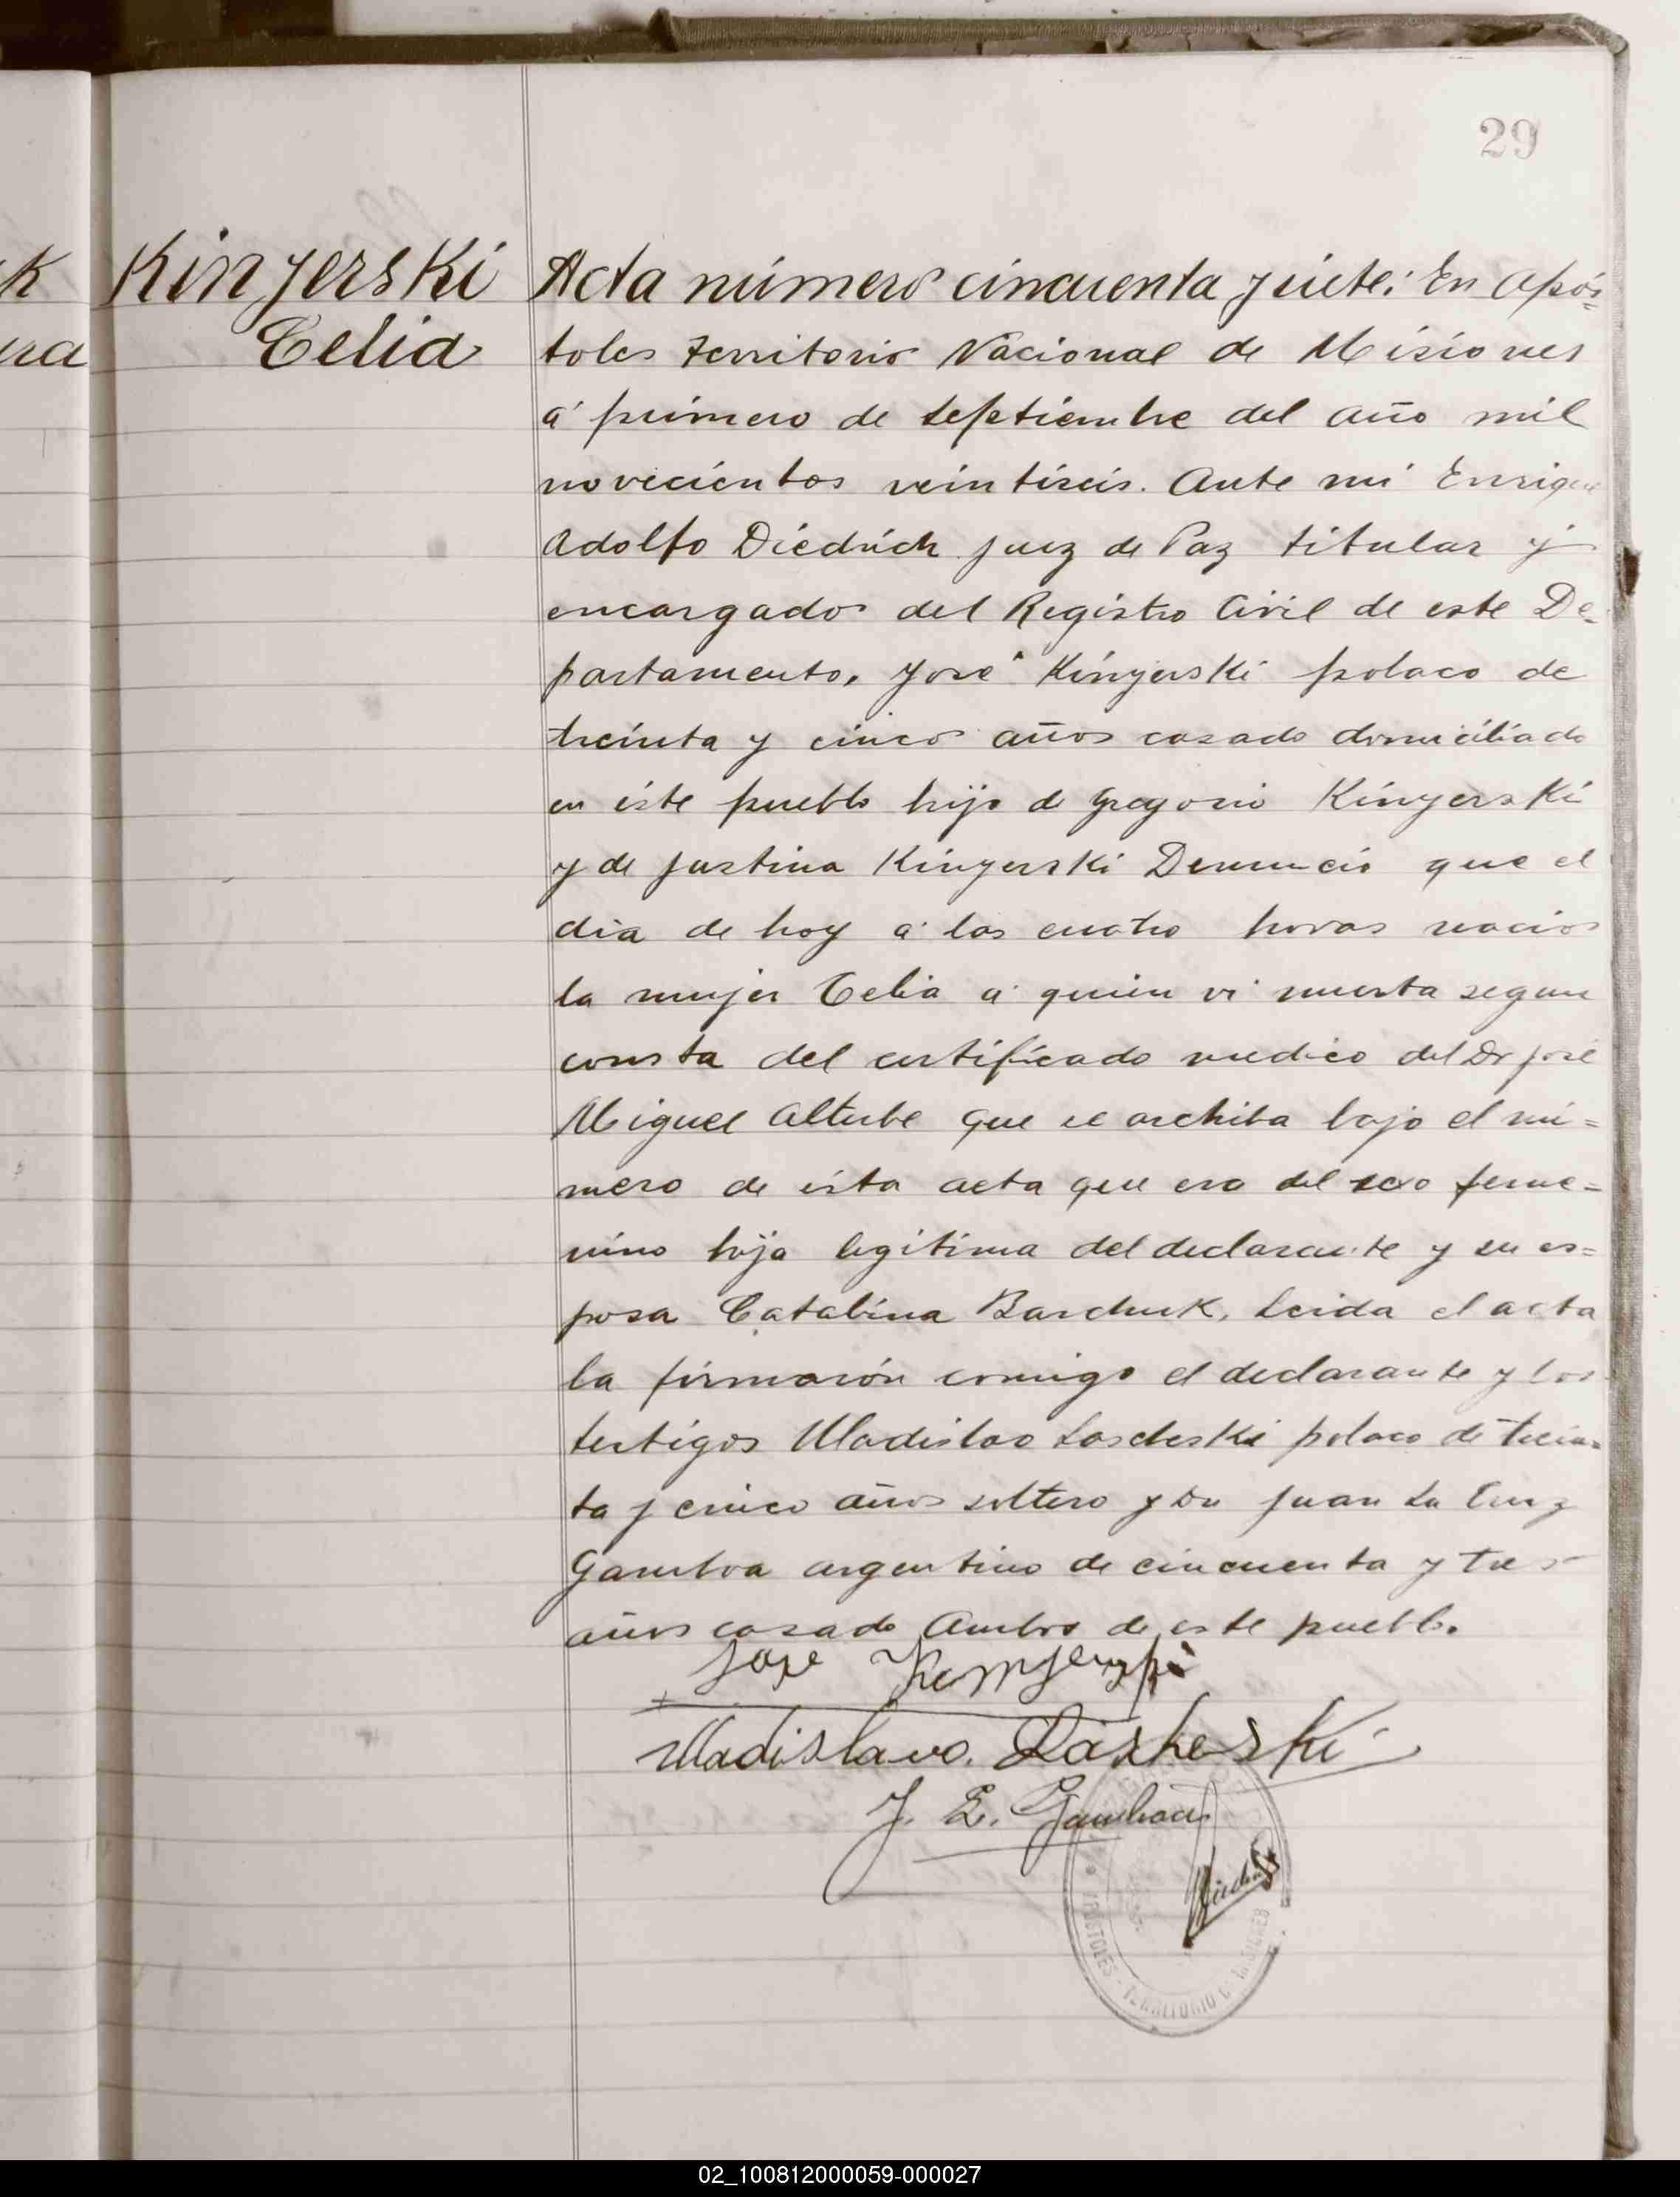 29
k
na
Kinyerski
Celia
Acta número cincuenta y siete: En Após-
toles Territorio Nacional de Misiones
á primero de Septiembre del año mil
novecientos veintiseis. Ante mi Enrique
Adolfo Diedrich Juez de Paz titular y
encargado del Registro Civil de este De-
partamento, José Kinyerski polaco de
treinta y cinco años casado domiciliado
en éste pueblo hijo de Gregorio Kinyerski
y de Justina Kinyerski Denunció que el
dia de hoy á las cuatro horas nació
la mujer Celia á quien vi muerta segun
consta del certificado medico del Dr José
Miguel Altube que se archiba bajo el nú=
mero de ésta acta que era del sexo feme=
nino hija legitima del declarante y su es=
posa Catalina Barchuk, Leida el acta
la firmarón comigo el declarante y los
testigos Uladislao Lascheski polaco de trein=
ta y cinco años soltero y Dn Juan La Cruz
Gamboa argentino de cincuenta y tres
años casado Ambos de este pueblo.
José
Uladislavo. Lasheski
J. L. Gamboa
Diedrich
APOSTOLES - TERRITORIO DE MISIONES
02_100812000059-000027